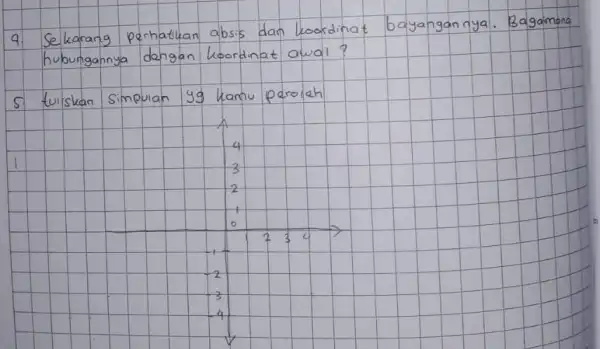 4. Sekarang perhatikan absis dan koordinat bayangannya. Bagaimana
hubungannya dengan koordinat awal ?
5. tuliskan simpulan yg kamu peroleh
1
4
3
2
1
0
1 2 3 4
-1
-2
-3
-4